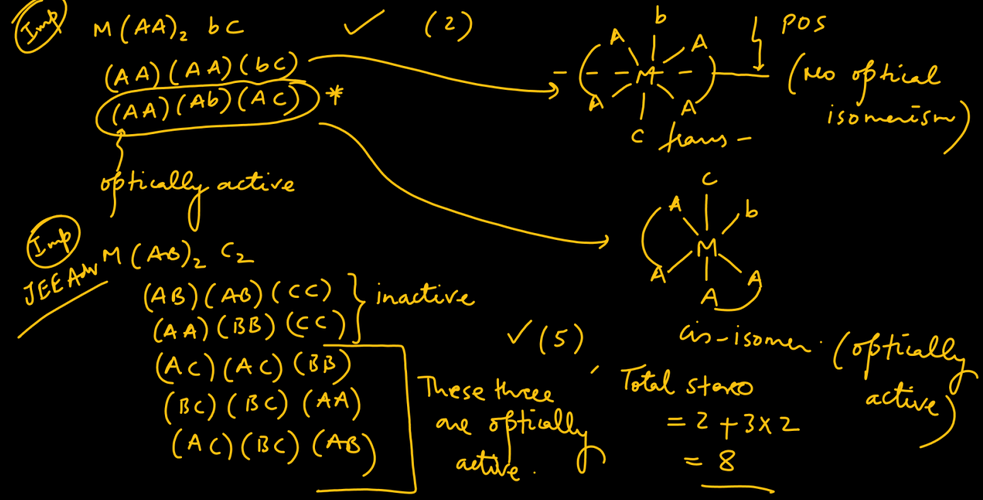 Imp
M(AA)₂ bC ✓ (2)
(AA)(AA)(bC)
(AA)(Ab)(AC) *
optically active
b
A A
M
A A
C trans-
POS
(no optical
isomerism)
C
A b
M
A A
A
cis-isomer. (optically
active)
Imp
JEE Adv M(AB)₂ C₂
(AB)(AB)(CC)
(AA)(BB)(CC) } inactive
(AC)(AC)(BB)
(BC)(BC)(AA)
(AC)(BC)(AB)
✓(5)
These three
are optically
active.
Total stereo
= 2 + 3×2
= 8